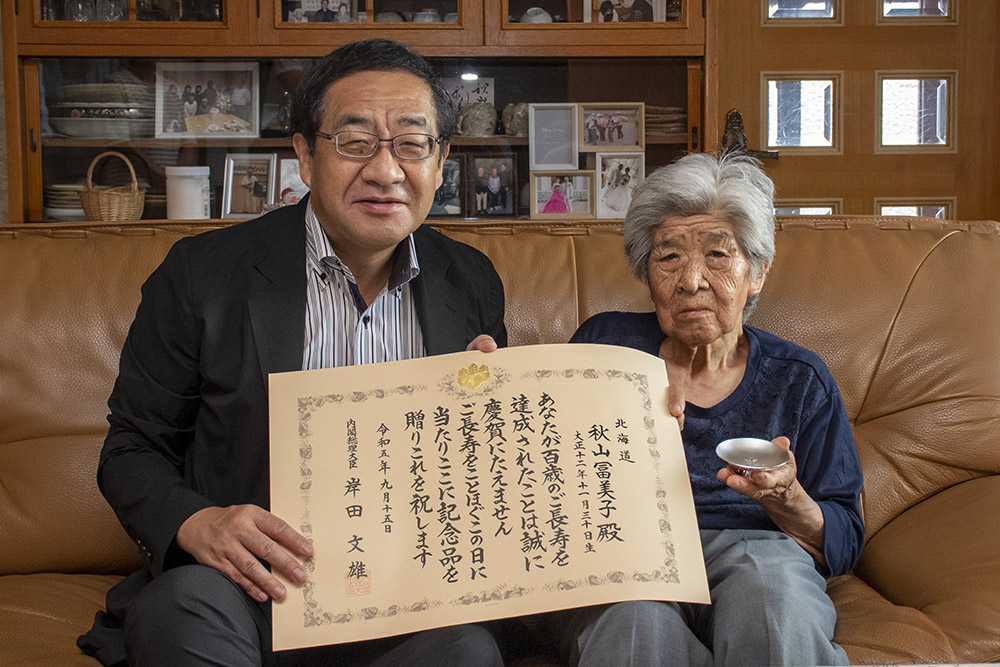 北海道
秋山冨美子 殿
大正十二年十一月三十日生
あなたが百歳のご長寿を
達成されたことは誠に
慶賀にたえません
ご長寿をことほぐこの日に
当たりここに記念品を
贈りこれを祝します
令和五年 九月十五日
内閣総理大臣 岸田 文雄